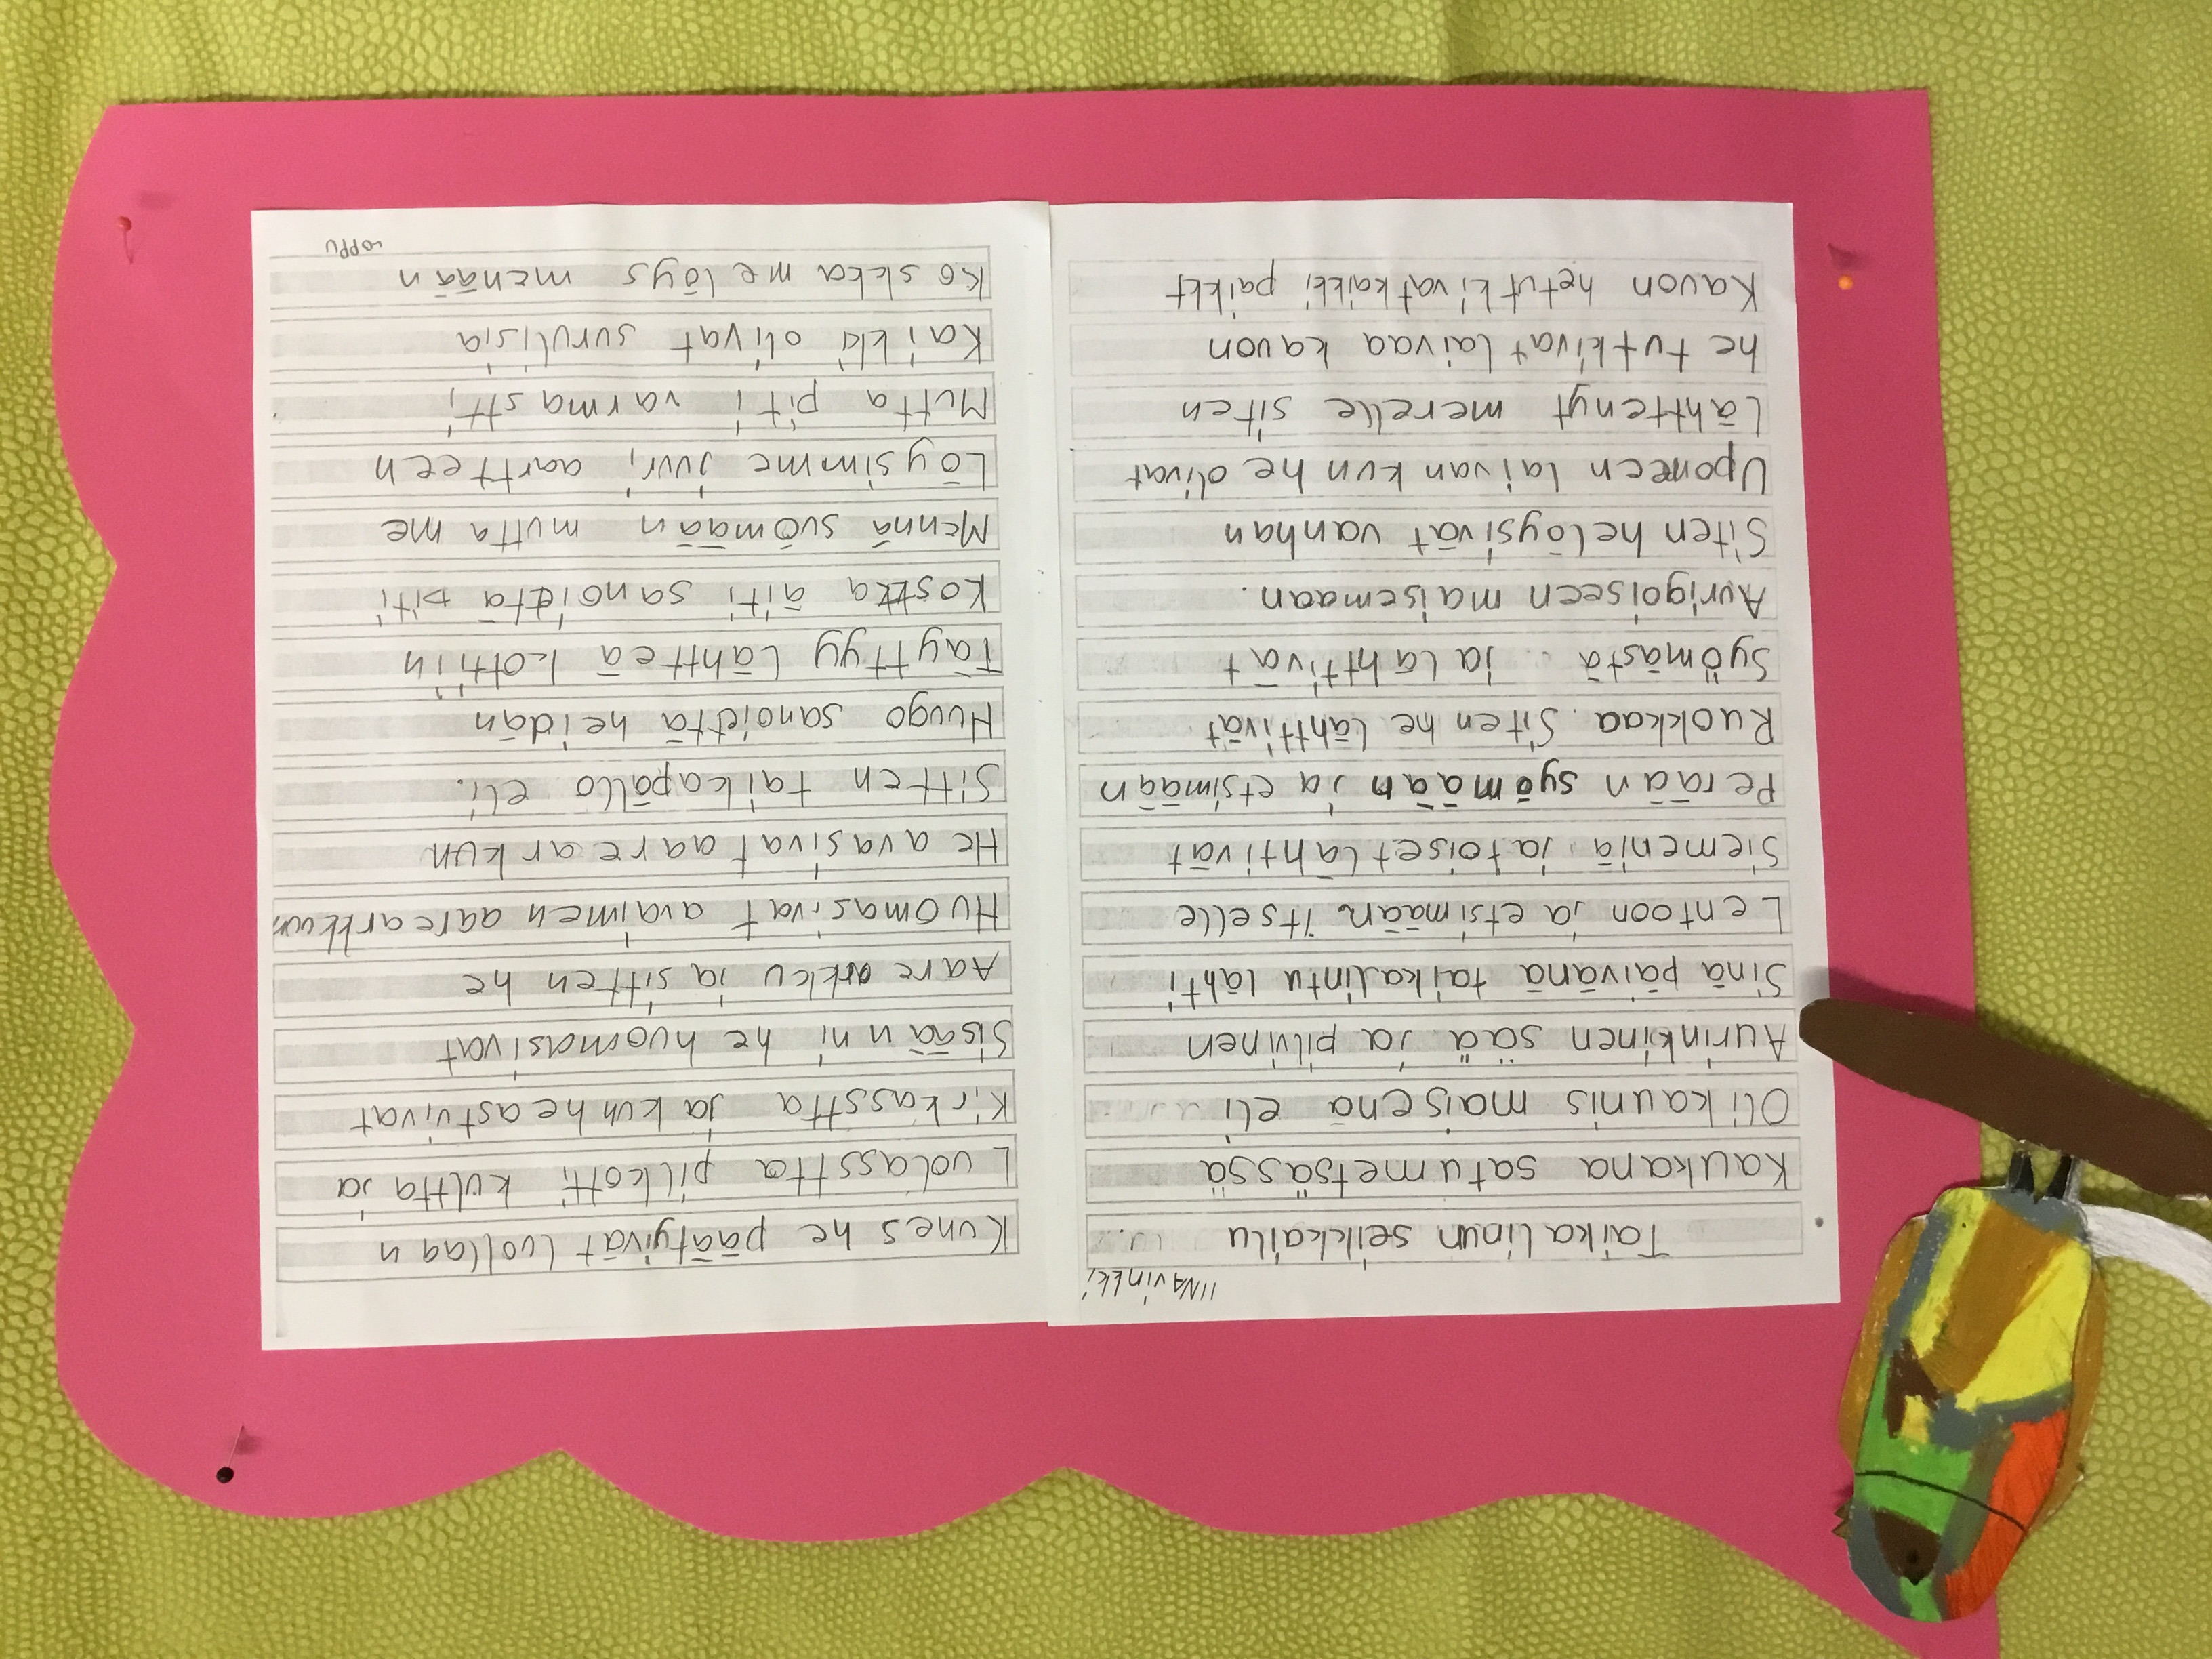 IINA vinkki
Taikalinun seikkailu
Kaukana satumetsässä
Oli kaunis maisenä eli
Aurinkinen sää ja pilvinen
Sinä päivänä taikalintu lähti
Lentoon ja etsimään itselle
Siemeniä ja toiset lähtivät
Perään syömään ja etsimään
Ruokkaa. Siten he lähttivät
Syömästä ja Lahttivät
Aurigoiseen maisemaan.
Siten helöysivät vanhan
Uponeen laivan kun he olivat
Lähttenyt merelle siten
he tutkivat laivaa kauon
Kauon hetutkivatkaikki paikkt
Kunes he päätyivät luollaan
Luolasstta pilkotti kultta ja
Kirkasstta ja kun heastuivat
Sisäänni he huomasivat
Aare arkku ja sitten he
Huomasivat avaimen aarearkkuun
He avasivat aarearkun
Sitten taikapöllö eli.
Huugo sanoiettä heidän
Täyttyy Lähtteä kottiin
Koska äiti sanoiettä piti
Mennä suomaan mutta me
Löysimme juuri aartteen
Mutta piti varmastti
Kaikki olivat surulisia
Koskka me löys menään
LOPPU